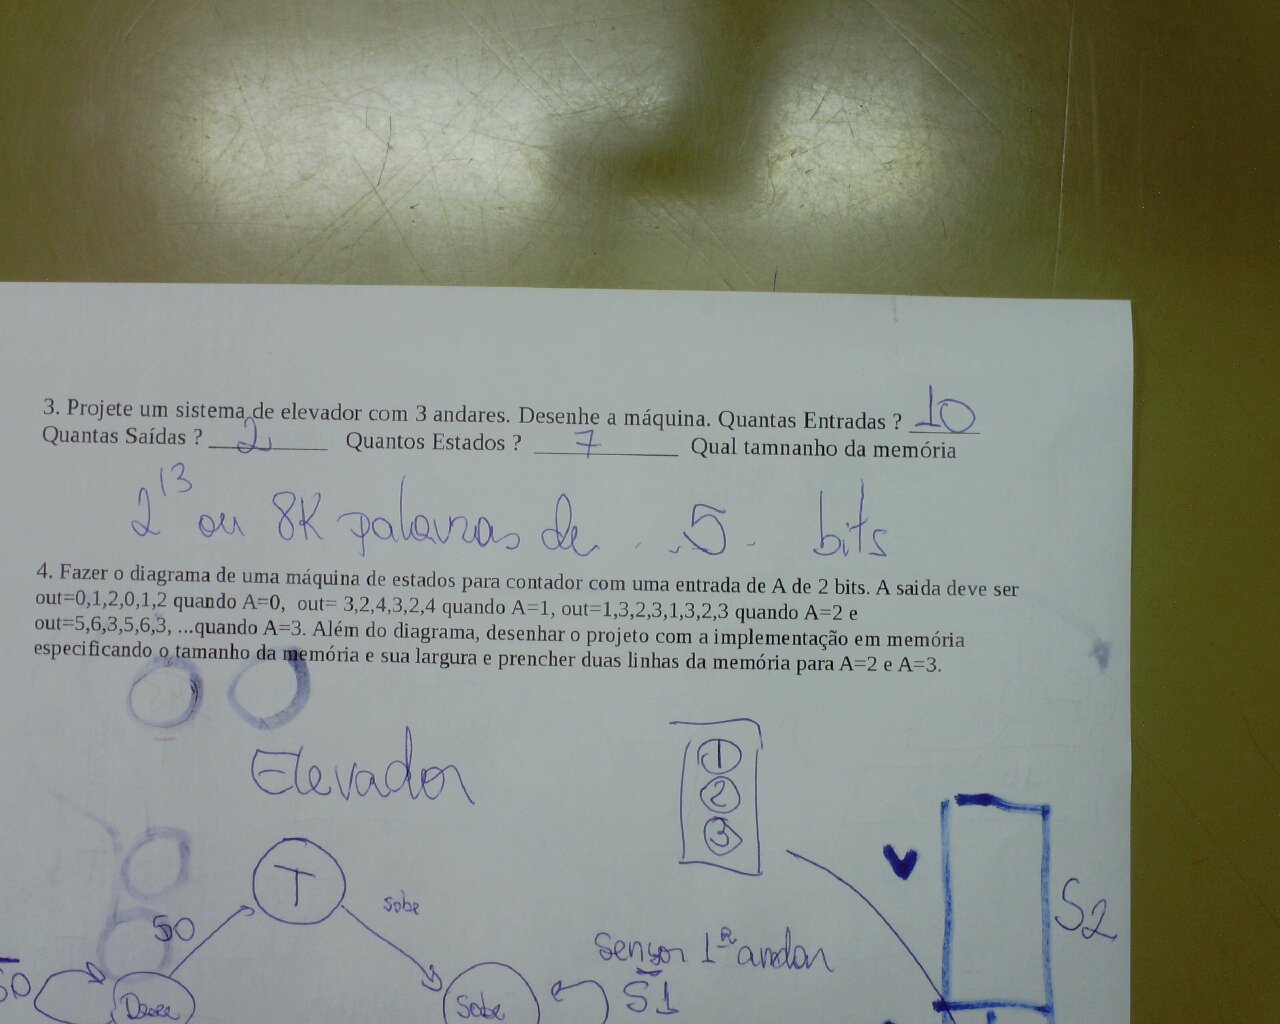 3. Projete um sistema de elevador com 3 andares. Desenhe a máquina. Quantas Entradas ? 10
Quantas Saídas ? 2 Quantos Estados ? 7 Qual tamnanho da memória
2¹³ ou 8K palavras de . . 5 . bits
4. Fazer o diagrama de uma máquina de estados para contador com uma entrada de A de 2 bits. A saida deve ser
out=0,1,2,0,1,2 quando A=0, out= 3,2,4,3,2,4 quando A=1, out=1,3,2,3,1,3,2,3 quando A=2 e
out=5,6,3,5,6,3, ...quando A=3. Além do diagrama, desenhar o projeto com a implementação em memória
especificando o tamanho da memória e sua largura e prencher duas linhas da memória para A=2 e A=3.
Elevador
1
2
3
T
sobe
S0
S2
sensor 1º andar
S̅1
S̅0
Desce
Sobe